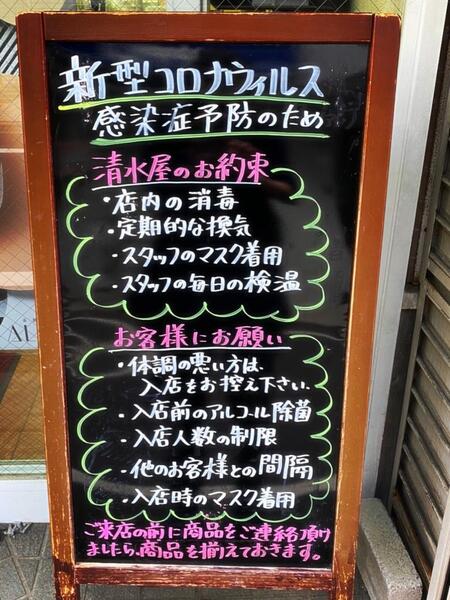 新型コロナウィルス
感染症予防のため
清水屋のお約束
・店内の消毒
・定期的な換気
・スタッフのマスク着用
・スタッフの毎日の検温
お客様にお願い
・体調の悪い方は、
入店をお控え下さい.
・入店前のアルコール除菌
・入店人数の制限
・他のお客様との間隔
・入店時のマスク着用
ご来店の前に商品をご連絡頂け
ましたら、商品を揃えておきます。